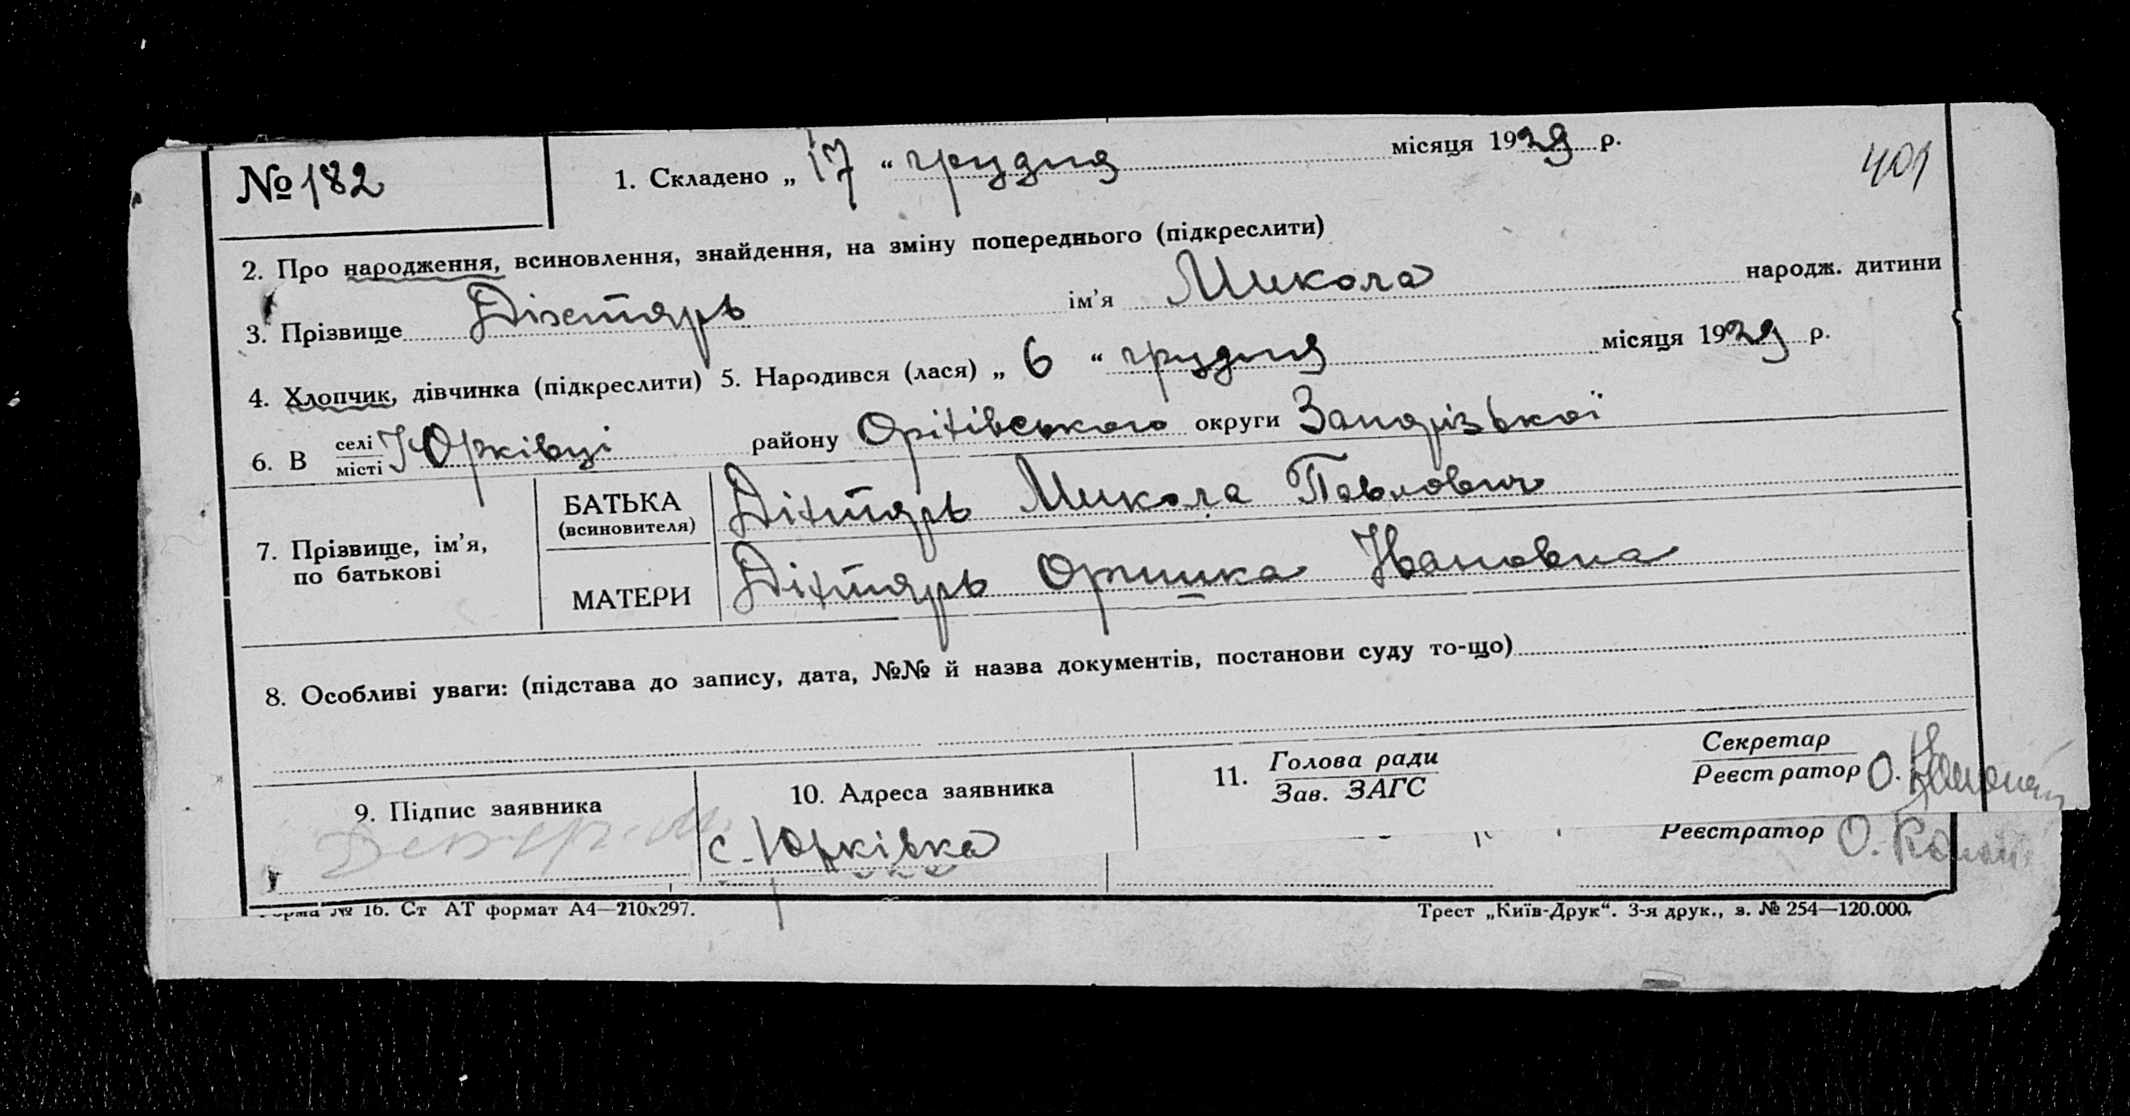 № 182
1. Складено „ 17 “ грудня місяця 1929 р.
401
2. Про народження, всиновлення, знайдення, на зміну попереднього (підкреслити)
3. Прізвище Діхтярь ім’я Микола народж. дитини
4. Хлопчик, дівчинка (підкреслити) 5. Народився (лася) „ 6 “ грудня місяця 1929 р.
6. В селі/місті Юрківці району Оріхівського округи Запорізької
7. Прізвище, ім’я, по батькові
БАТЬКА (всиновителя) Діхтярь Микола Павлович
МАТЕРИ Діхтярь Оришка Івановна
8. Особливі уваги: (підстава до запису, дата, №№ й назва документів, постанови суду то-що)
9. Підпис заявника
10. Адреса заявника
с. Юрківка
11. Голова ради
Зав. ЗАГС
Секретар
Реєстратор О.
Реєстратор О.
Форма № 16. Ст АТ формат А4—210х297.
Трест „Київ-Друк“. 3-я друк., з. № 254—120.000.